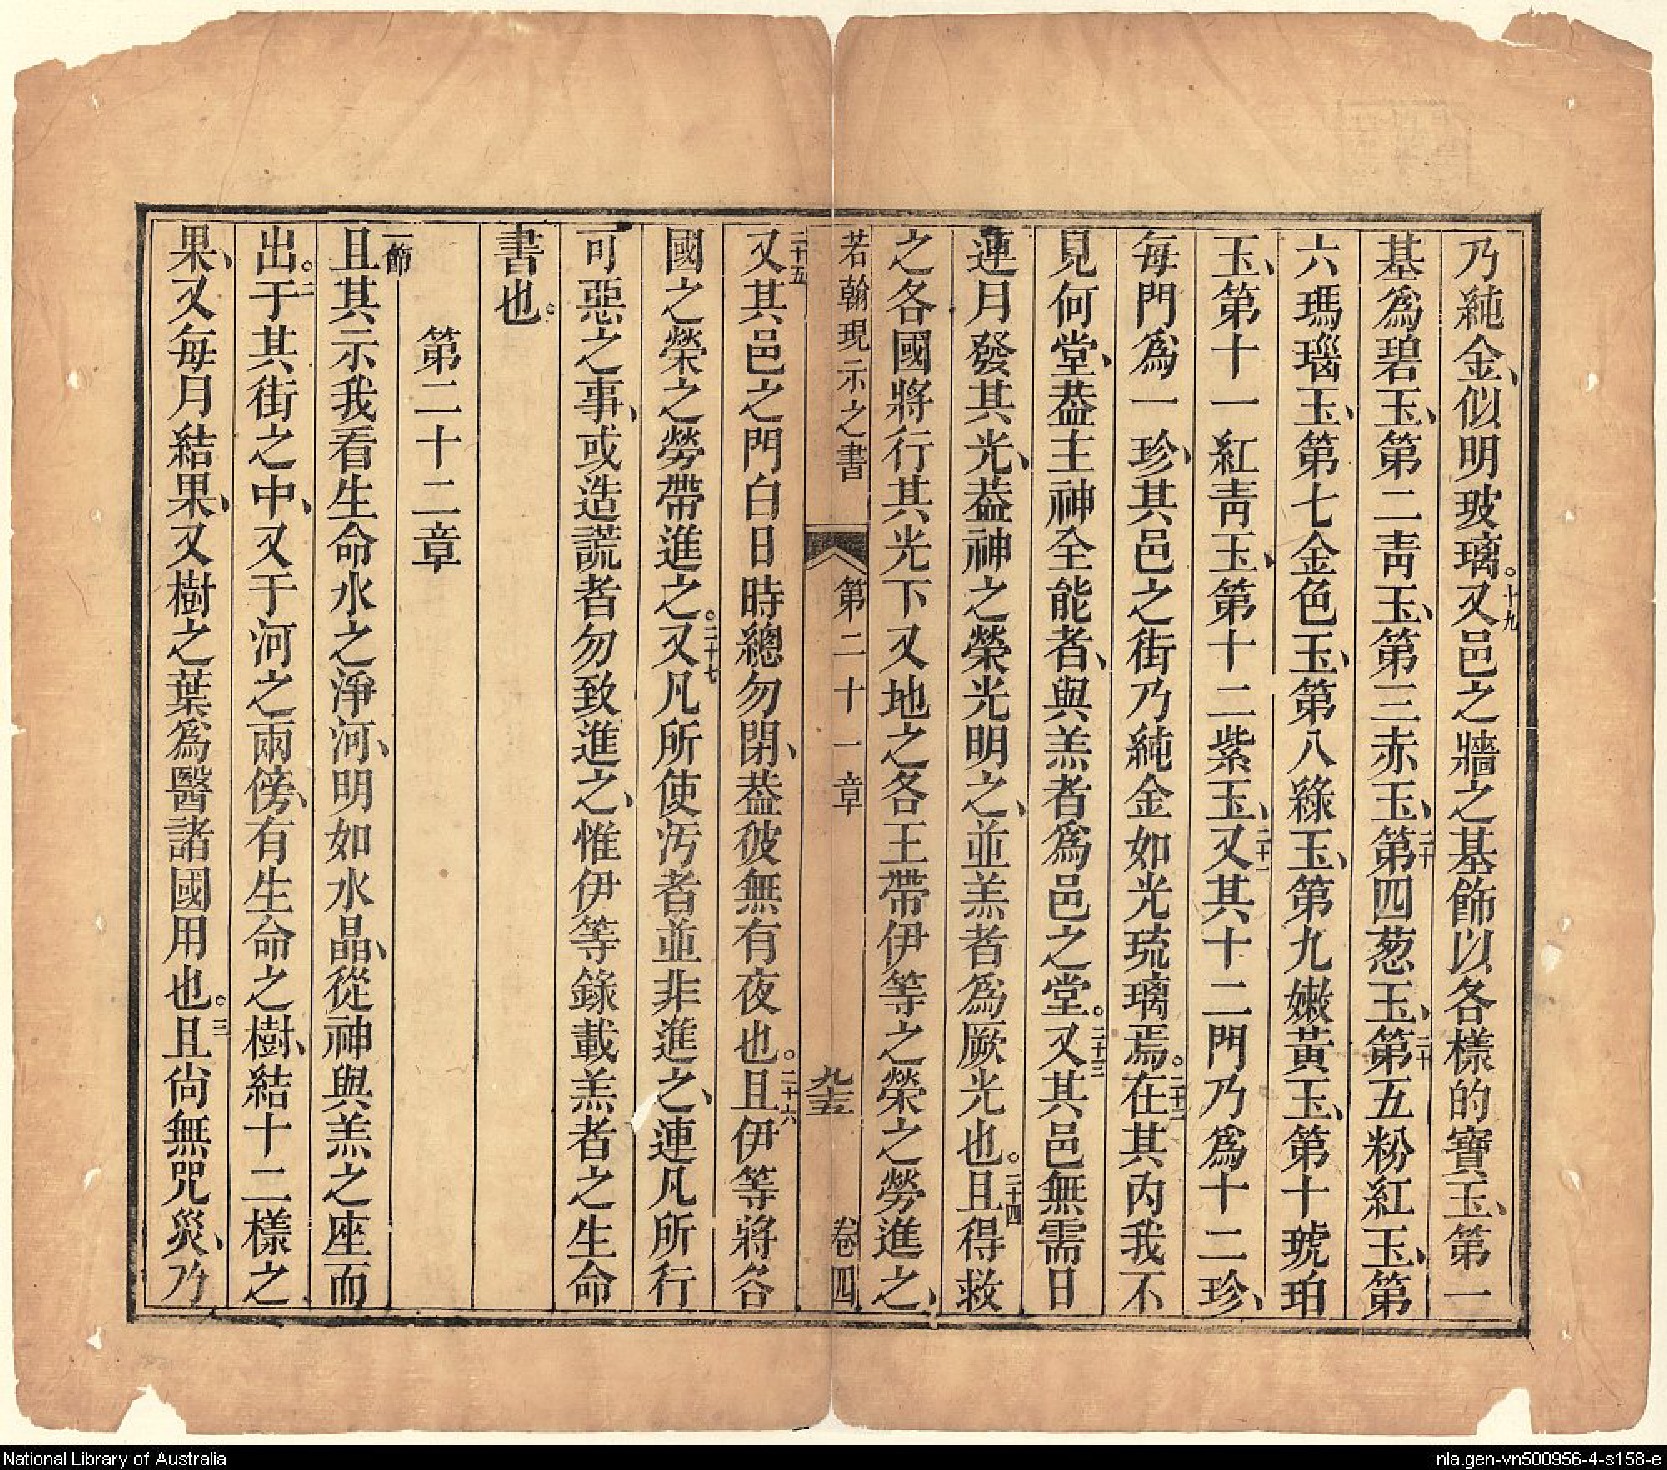 乃純金、似明玻璃。十九又邑之牆之基飾以各樣的寶玉、第一
基爲碧玉、第二靑玉、第三赤玉、二十第四葱玉、二十第五粉紅玉、第
六瑪瑙玉、第七金色玉、第八綠玉、第九嫩黃玉、第十琥珀
玉、第十一紅靑玉、第十二紫玉、二十一又其十二門乃爲十二珍、
每門爲一珍、其邑之街乃純金如光琉璃焉。二十二在其內我不
見何堂、葢主神全能者、與羔者爲邑之堂。二十三又其邑無需日
連月發其光、葢神之榮光明之、並羔者爲厥光也。二十四且得救
之各國將行其光下又地之各王帶伊等之榮之勞進之、
若翰現示之書 第二十一章 九十五 卷四
二十五又其邑之門白日時總勿閉、葢彼無有夜也。二十六且伊等將各
國之榮之勞帶進之。二十七又凡所使污者並非進之、連凡所行
可惡之事、或造謊者勿致進之、惟伊等錄載羔者之生命
書也。
第二十二章
一節且其示我看生命水之淨河、明如水晶、從神與羔之座而
出。二于其街之中、又于河之兩傍、有生命之樹、結十二樣之
果、又每月結果、又樹之葉爲醫諸國用也。三且尙無咒災、乃
National Library of Australia
nla.gen-vn500956-4-s158-e